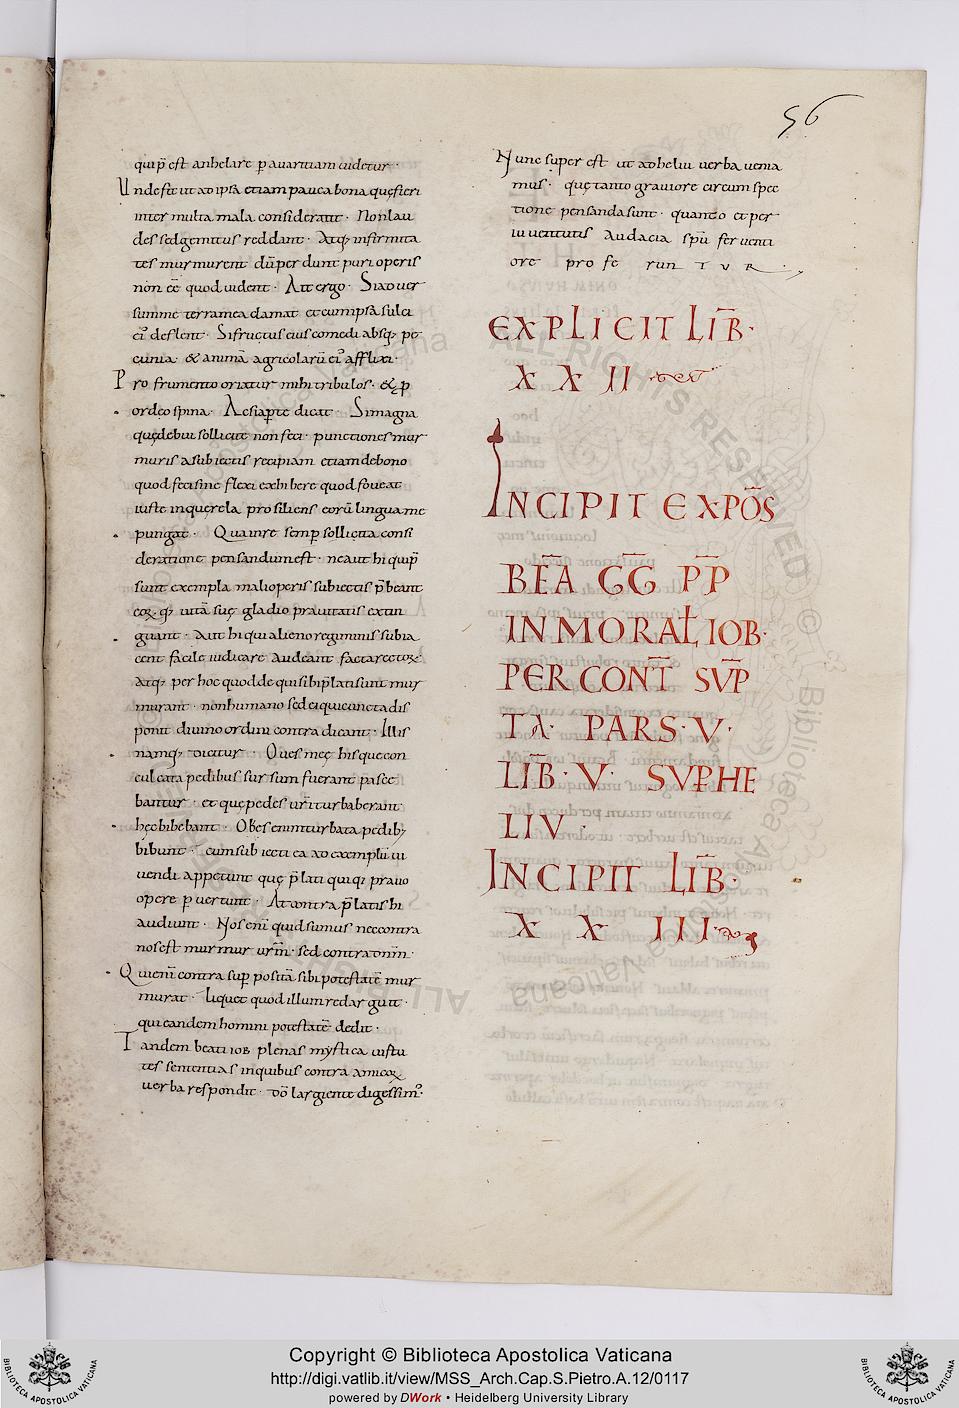 56
quip̄ est anhelare p avaritiam videtur·
Unde fit ut ad ipsā etiam pauca bona quę sieri
inter multa mala considerant· Non lau
des sed gemitus reddant· Atq; infirmita
tes murmurent dū per dunt puri operis
non ēe quod vident· Ait ergo· Si adver
sum me terra mea clamat et cum ipsa sulci
ei' deflent· Si fructus eius comedi absq; pe
cunia· & animā agricolarū ei' afflixi·
Pro frumento oriatur mihi tribulos· & p
ordeo spina· Ac si apte dicat· Si magna
quę debui sollicite non feci· punctiones mur
muris a subiectis recipiam etiam de bono
quod feci sine flexi exhibere quod foveat
iuste in querela prosiliens eorū lingua me
pungat· Qua in re semp sollicita consi
deratione pensandum est· ne aut hi qui p̄
sunt exempla mali operis subiectis p̄beant
eoꝝ·q; vitā suę gladio pravitatis extin
guant· Aut hi qui alieno regiminis subia
cent facile iudicare audeant facta rectoꝝ·
Atq; per hoc quod de qui sibi p̄lati sunt mur
murant· non humano sed ei qui cuncta dis
ponit divino ordini contradicant· Illis
namq; dicitur· Oves meę his que con
culcata pedibus fuerant pasce
bantur· et quę pedes vr̄i turbaberant
hęc bibebant· Oves enim turbata pedib;
bibunt· cum subiecti ea ad exemplū vi
vendi appetunt quę p̄lati quiq; pravo
opere p vertunt· At contra p̄latis hi
audiunt· Nos enī quid sumus nec contra
nos est murmur vr̄m· sed contra dn̄m·
Qui enī contra sup positā sibi potestatē mur
murat· liquet quod illum redarguit·
qui eandem homini potestatē dedit·
Tandem beati iob plenas mystica virtu
tes sententias in quibus contra amicoꝝ
verba respondit· dō largiente digessim'·
Nunc super est ut ad heliu verba venia
mus· quę tanto graviore circum spec
tione pensanda sunt· quanto et per
iuventutis audacia spū ferventi
ore proferuntur·
EXPLICIT LIB̄·
XXII
INCIPIT EXPŌS
BĒA GḠ PP̄
IN MORAL̄ IOB·
PER CONT̄ SVP̄
TA· PARS·V·
LIB̄·V· SVP HE
LIV·
INCIPIT LIB̄·
XXIII
© Biblioteca Apostolica Vaticana
ALL RIGHTS RESERVED
Copyright © Biblioteca Apostolica Vaticana
http://digi.vatlib.it/view/MSS_Arch.Cap.S.Pietro.A.12/0117
powered by DWork • Heidelberg University Library
BIBLIOTECA APOSTOLICA VATICANA
BIBLIOTECA APOSTOLICA VATICANA